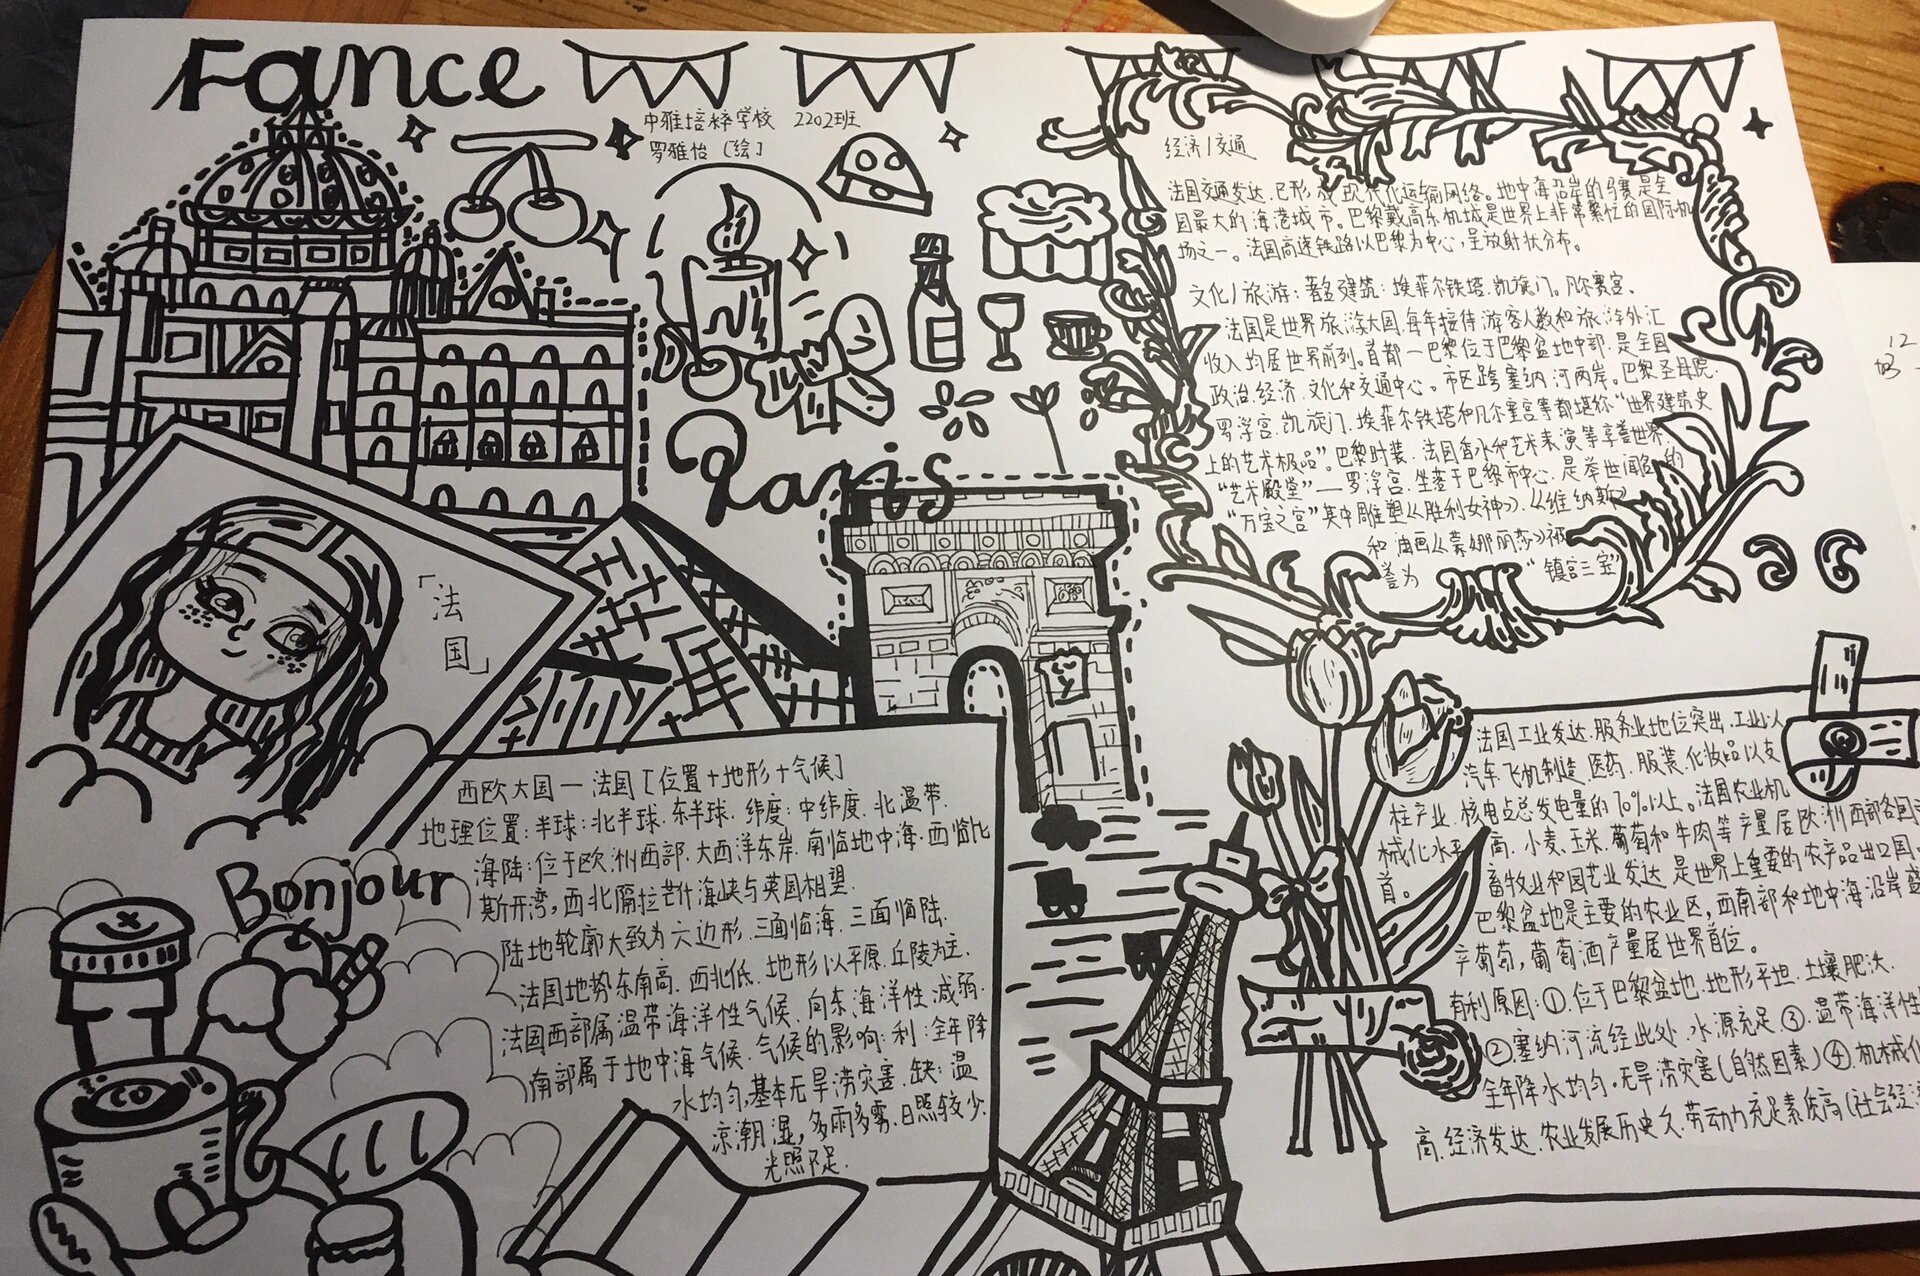 Fance
中雅培粹学校 2202班
罗雅怡 [绘]
经济/交通
法国交通发达,已形成现代化运输网络。地中海沿岸的马赛是全
国最大的海港城市。巴黎戴高乐机场是世界上非常繁忙的国际机
场之一。法国高速铁路以巴黎为中心,呈放射状分布。
文化/旅游:著名建筑:埃菲尔铁塔.凯旋门。凡尔赛宫.
法国是世界旅游大国,每年接待游客人数和旅游外汇
收入均居世界前列。首都一巴黎位于巴黎盆地中部,是全国
政治.经济.文化和交通中心。市区跨塞纳河两岸。巴黎圣母院.
罗浮宫.凯旋门.埃菲尔铁塔和凡尔塞宫等都堪称“世界建筑史
上的艺术极品”。巴黎时装.法国香水和艺术表演等享誉世界.
“艺术殿堂”—罗浮宫.坐落于巴黎市中心.是举世闻名的
“万宝之宫”其中雕塑《胜利女神》.《维纳斯》
和油画《蒙娜丽莎》被
誉为“镇宫三宝”
Paris
「法
国」
西欧大国一法国[位置+地形+气候]
地理位置:半球:北半球.东半球.纬度:中纬度.北温带.
海陆:位于欧洲西部.大西洋东岸.南临地中海.西临比
斯开湾,西北隔拉芒什海峡与英国相望.
陆地轮廓大致为六边形.三面临海.三面临陆.
法国地势东南高.西北低.地形以平原.丘陵为主.
法国西部属温带海洋性气候.向东海洋性减弱.
南部属于地中海气候.气候的影响:利:全年降
水均匀,基本无旱涝灾害.缺:温
凉潮湿,多雨多雾.日照较少.
光照不足.
Bonjour
CO
法国工业发达.服务业地位突出.工业以
汽车飞机制造.医药.服装.化妆品以支
柱产业.核电占总发电量的70%以上。法国农业机
械化水平高.小麦.玉米.葡萄和牛肉等产量居欧洲西部各国
首。畜牧业和园艺业发达.是世界上重要的农产品出口国
巴黎盆地是主要的农业区,西南部和地中海沿岸盛
产葡萄,葡萄酒产量居世界首位。
有利原因:①.位于巴黎盆地.地形平坦.土壤肥沃.
②塞纳河流经此处.水源充足③.温带海洋性
全年降水均匀.无旱涝灾害(自然因素)④.机械化
高.经济发达.农业发展历史久.劳动力充足素质高(社会经济
12